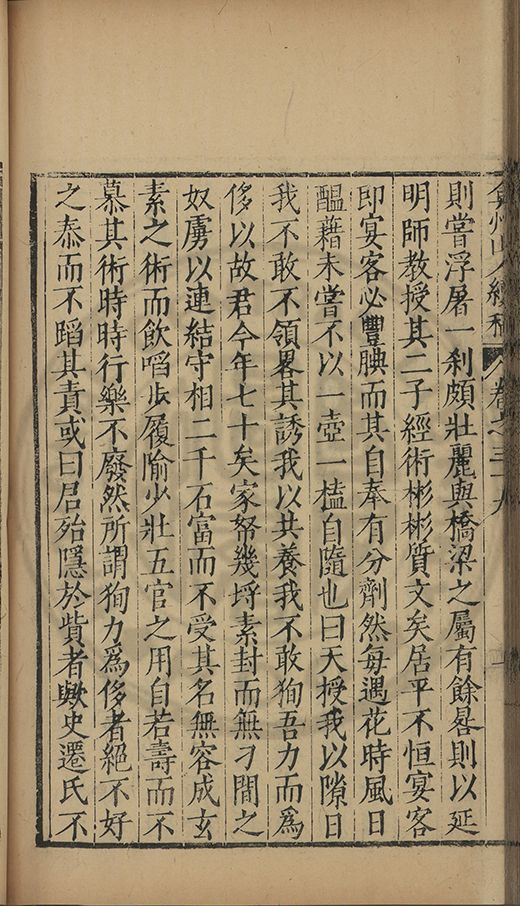 弇州山人續稿 卷之三十九
則嘗浮屠一刹頗壯麗與橋梁之屬有餘晷則以延
明師教授其二子經術彬彬質文矣居平不恒宴客
即宴客必豐腆而其自奉有分劑然每遇花時風日
醖藉未嘗不以一壺一榼自隨也曰天授我以隙日
我不敢不領畧其誘我以共養我不敢狥吾力而爲
侈以故君今年七十矣家帑幾埒素封而無刁閒之
奴虜以連結守相二千石富而不受其名無容成玄
素之術而飲啗步履隃少壯五官之用自若壽而不
慕其術時時行樂不廢然所謂狥力爲侈者絕不好
之泰而不蹈其責或曰君殆隱於貲者歟史遷氏不